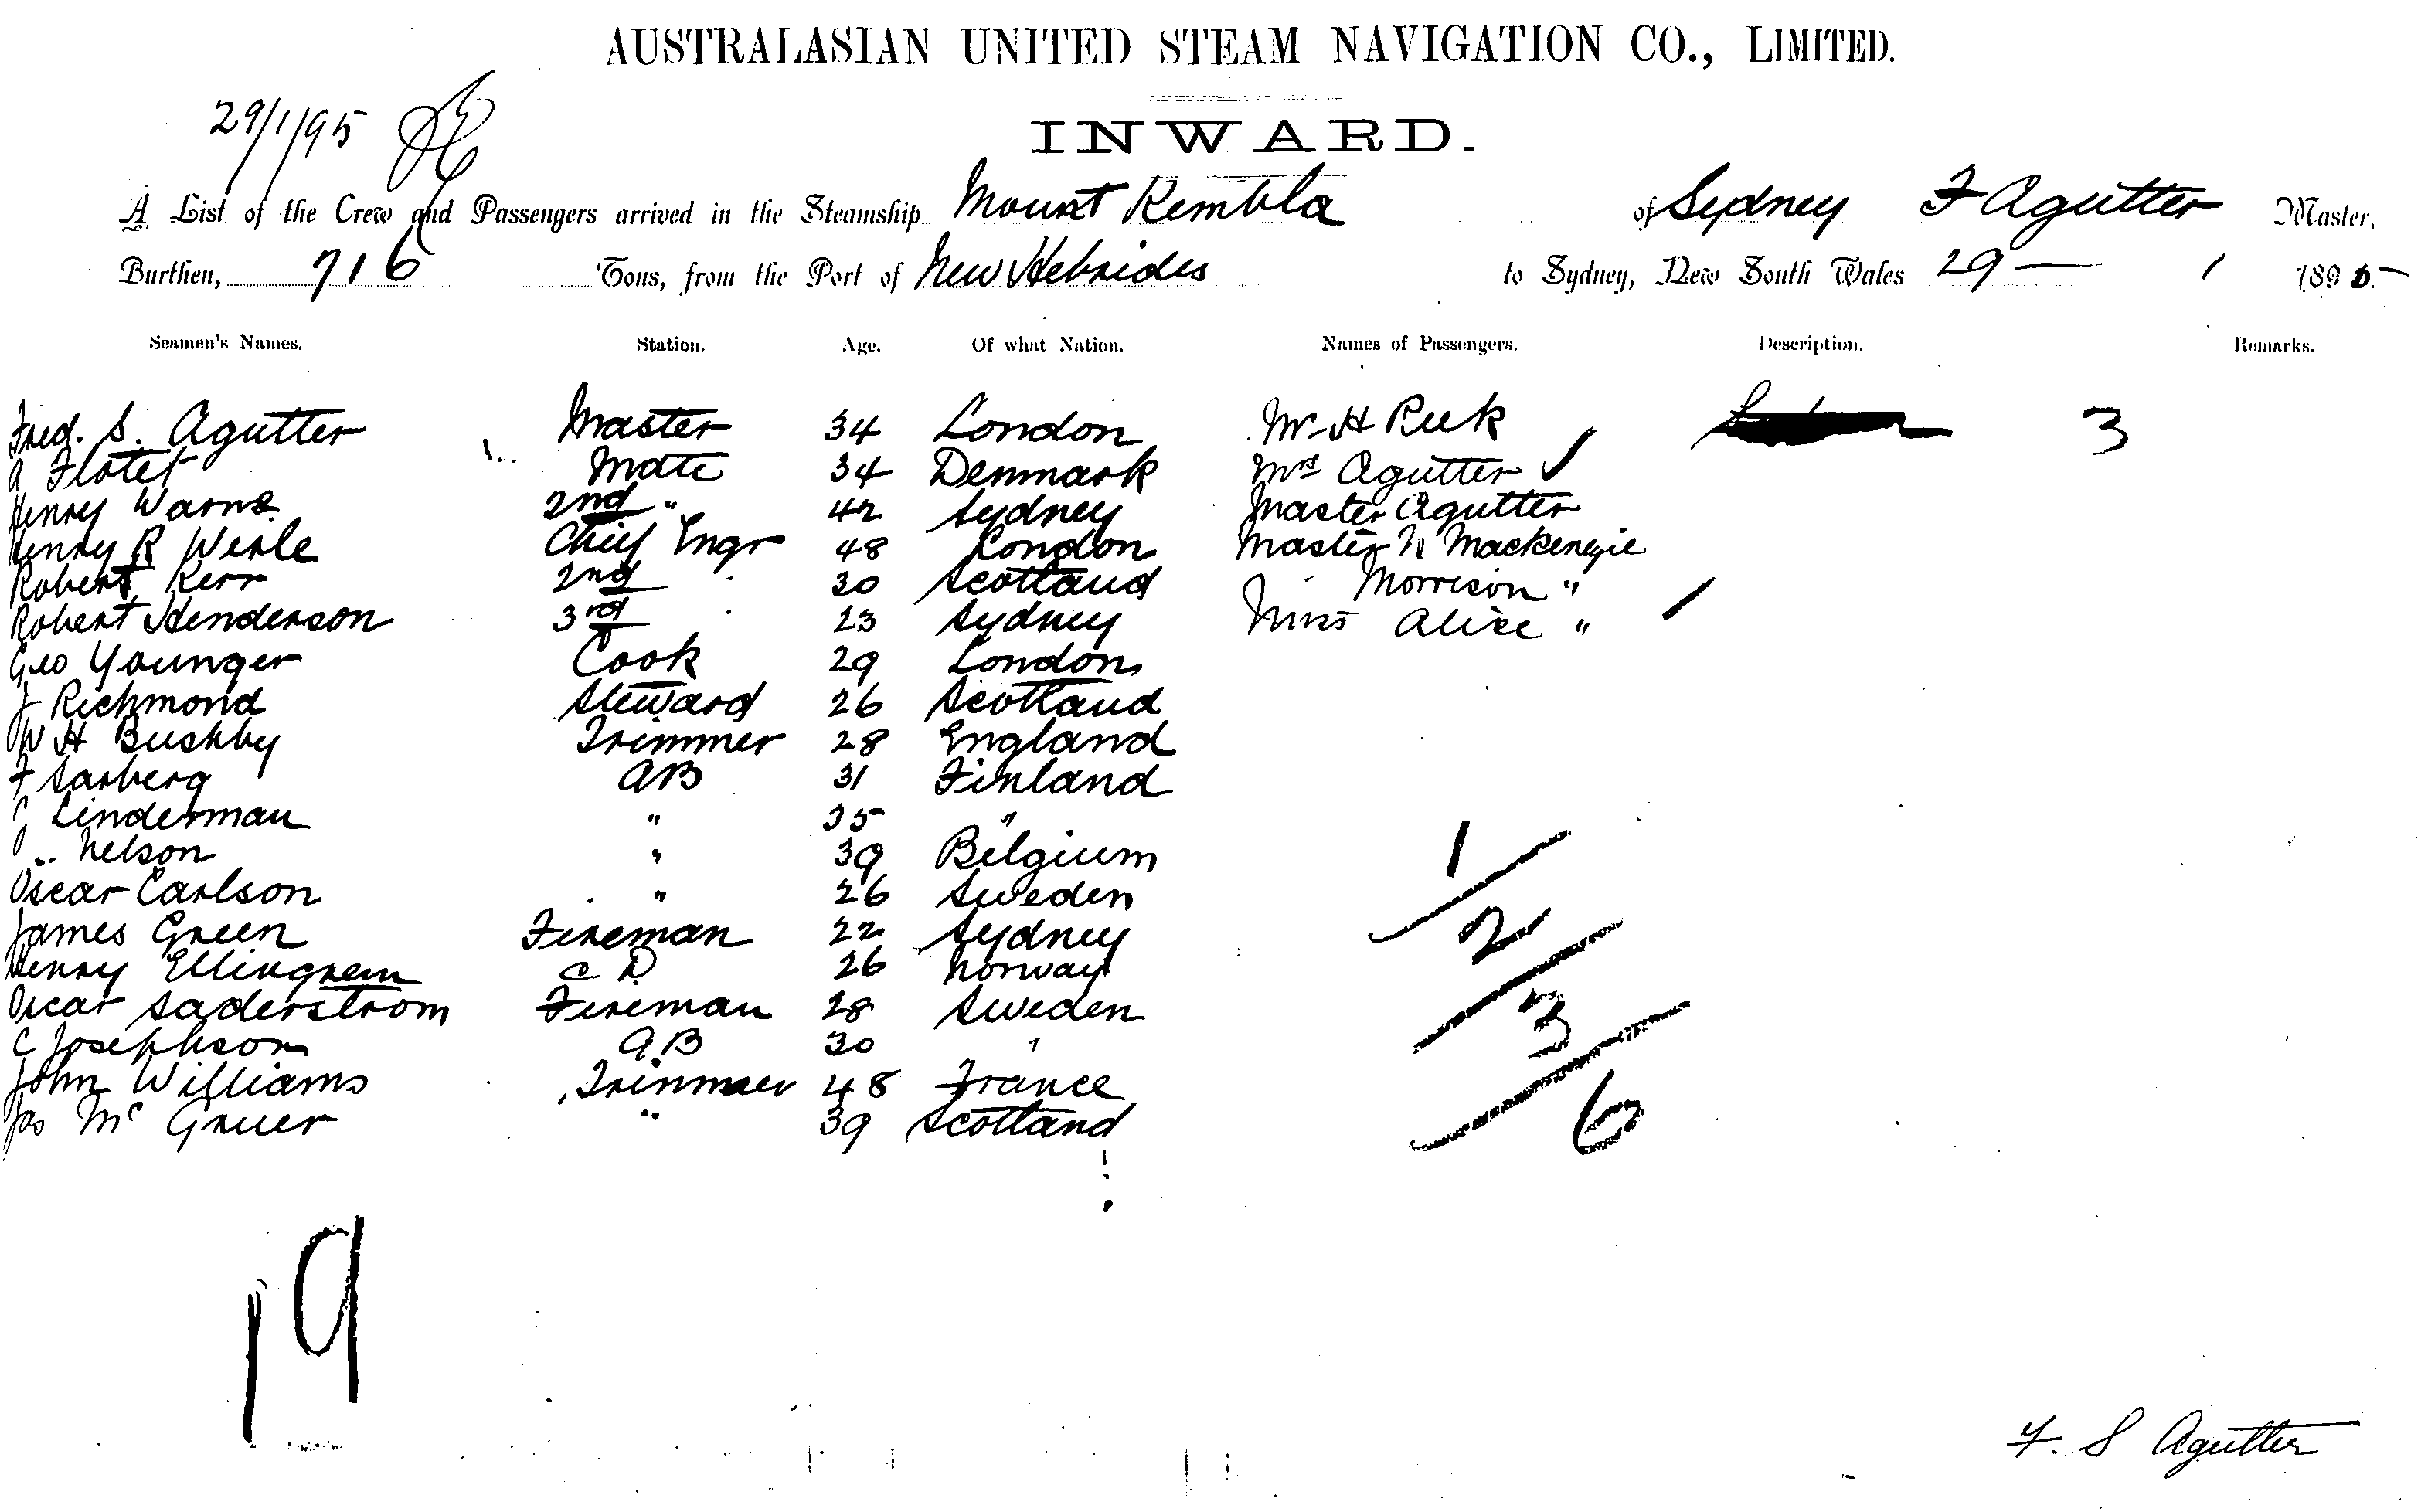 AUSTRALASIAN UNITED STEAM NAVIGATION CO., LIMITED.
29/1/95
INWARD.
A List of the Crew and Passengers arrived in the Steamship Mount Kembla of Sydney F Agutter Master,
Burthen, 716 Tons, from the Port of New Hebrides to Sydney, New South Wales 29 — 1 1895
Seamen's Names. Station. Age. Of what Nation. Names of Passengers. Description. Remarks.
Fred. S. Agutter Master 34 London Mr H 3
A Mate 34 Denmark Mrs Agutter
Henry 2nd " 42 Sydney Master Agutter
Henry R Chief Engr 48 London Master N Mackenzie
Robert Kerr 2nd 30 Scotland Morrison "
Robert Henderson 3rd 23 Sydney Miss Alice "
Geo Younger Cook 29 London
J Richmond Steward 26 Scotland
W H Bushby Trimmer 28 England
F Sarberg AB 31 Finland
Linderman " 35 "
" Nelson " 39 Belgium
Oscar Carlson " 26 Sweden
James Green Fireman 22 Sydney
Henry 26 Norway
Oscar Saderstrom Fireman 28 Sweden
C Josephson A.B 30 "
John Williams Trimmer 48 France
Jas Mc Gruer " 39 Scotland
1
2
3
6
19
F. S Agutter